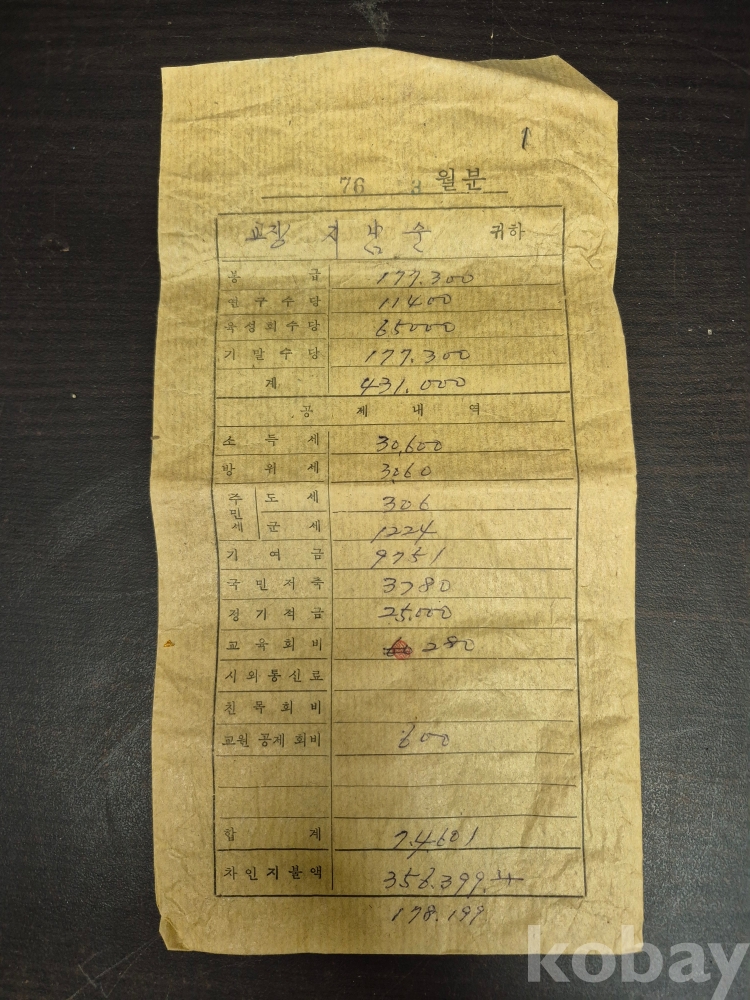 1
76 3 월분
교장 지남순 귀하
봉급 177.300
연구수당 11400
육성회수당 65000
기말수당 177.300
계 431.000
공제내역
소득세 30,600
방위세 3060
주민세 도세 306
군세 1224
기여금 9751
국민저축 3780
정기적금 25.000
교육회비 280
시외통신료
친목회비
교원공제회비 600
합계 74601
차인지불액 356.399
178.199
kobay